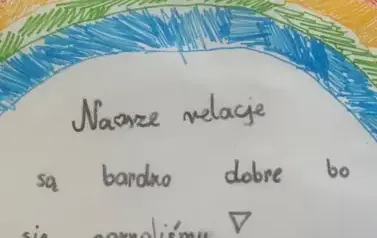 Nasze relacje
są bardzo dobre bo
się